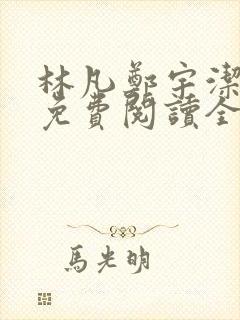 林凡鄭宇潔
免費閱讀全
馬光明